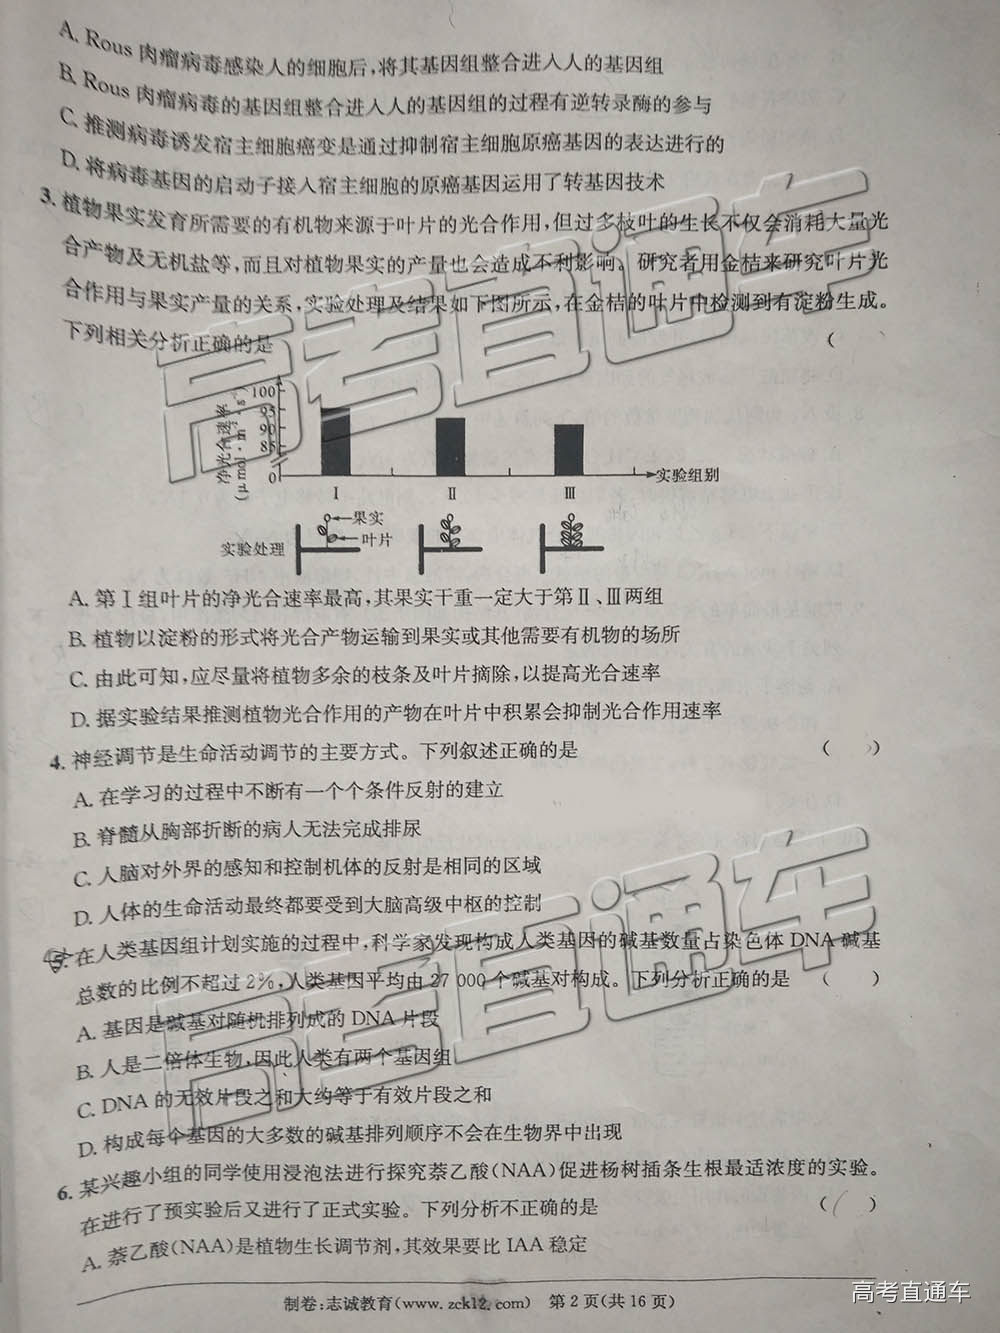 A. Rous 肉瘤病毒感染人的细胞后,将其基因组整合进入人的基因组
B. Rous 肉瘤病毒的基因组整合进入人的基因组的过程有逆转录酶的参与
C. 推测病毒诱发宿主细胞癌变是通过抑制宿主细胞原癌基因的表达进行的
D. 将病毒基因的启动子接入宿主细胞的原癌基因运用了转基因技术
3. 植物果实发育所需要的有机物来源于叶片的光合作用,但过多枝叶的生长不仅会消耗大量光
合产物及无机盐等,而且对植物果实的产量也会造成不利影响。研究者用金桔来研究叶片光
合作用与果实产量的关系,实验处理及结果如下图所示,在金桔的叶片中检测到有淀粉生成。
下列相关分析正确的是 (
净光合速率
(μmol·m⁻²·s⁻¹)
100
95
90
85
0
Ⅰ Ⅱ Ⅲ 实验组别
果实
叶片
实验处理
A. 第Ⅰ组叶片的净光合速率最高,其果实干重一定大于第Ⅱ、Ⅲ两组
B. 植物以淀粉的形式将光合产物运输到果实或其他需要有机物的场所
C. 由此可知,应尽量将植物多余的枝条及叶片摘除,以提高光合速率
D. 据实验结果推测植物光合作用的产物在叶片中积累会抑制光合作用速率
4. 神经调节是生命活动调节的主要方式。下列叙述正确的是 ( )
A. 在学习的过程中不断有一个个条件反射的建立
B. 脊髓从胸部折断的病人无法完成排尿
C. 人脑对外界的感知和控制机体的反射是相同的区域
D. 人体的生命活动最终都要受到大脑高级中枢的控制
5. 在人类基因组计划实施的过程中,科学家发现构成人类基因的碱基数量占染色体 DNA 碱基
总数的比例不超过 2%,人类基因平均由 27 000 个碱基对构成。下列分析正确的是 ( )
A. 基因是碱基对随机排列成的 DNA 片段
B. 人是二倍体生物,因此人类有两个基因组
C. DNA 的无效片段之和大约等于有效片段之和
D. 构成每个基因的大多数的碱基排列顺序不会在生物界中出现
6. 某兴趣小组的同学使用浸泡法进行探究萘乙酸(NAA)促进杨树插条生根最适浓度的实验。
在进行了预实验后又进行了正式实验。下列分析不正确的是 ( )
A. 萘乙酸(NAA)是植物生长调节剂,其效果要比 IAA 稳定
制卷:志诚教育(www. zck12. com) 第 2 页(共 16 页)
高考直通车
高考直通车
高考直通车